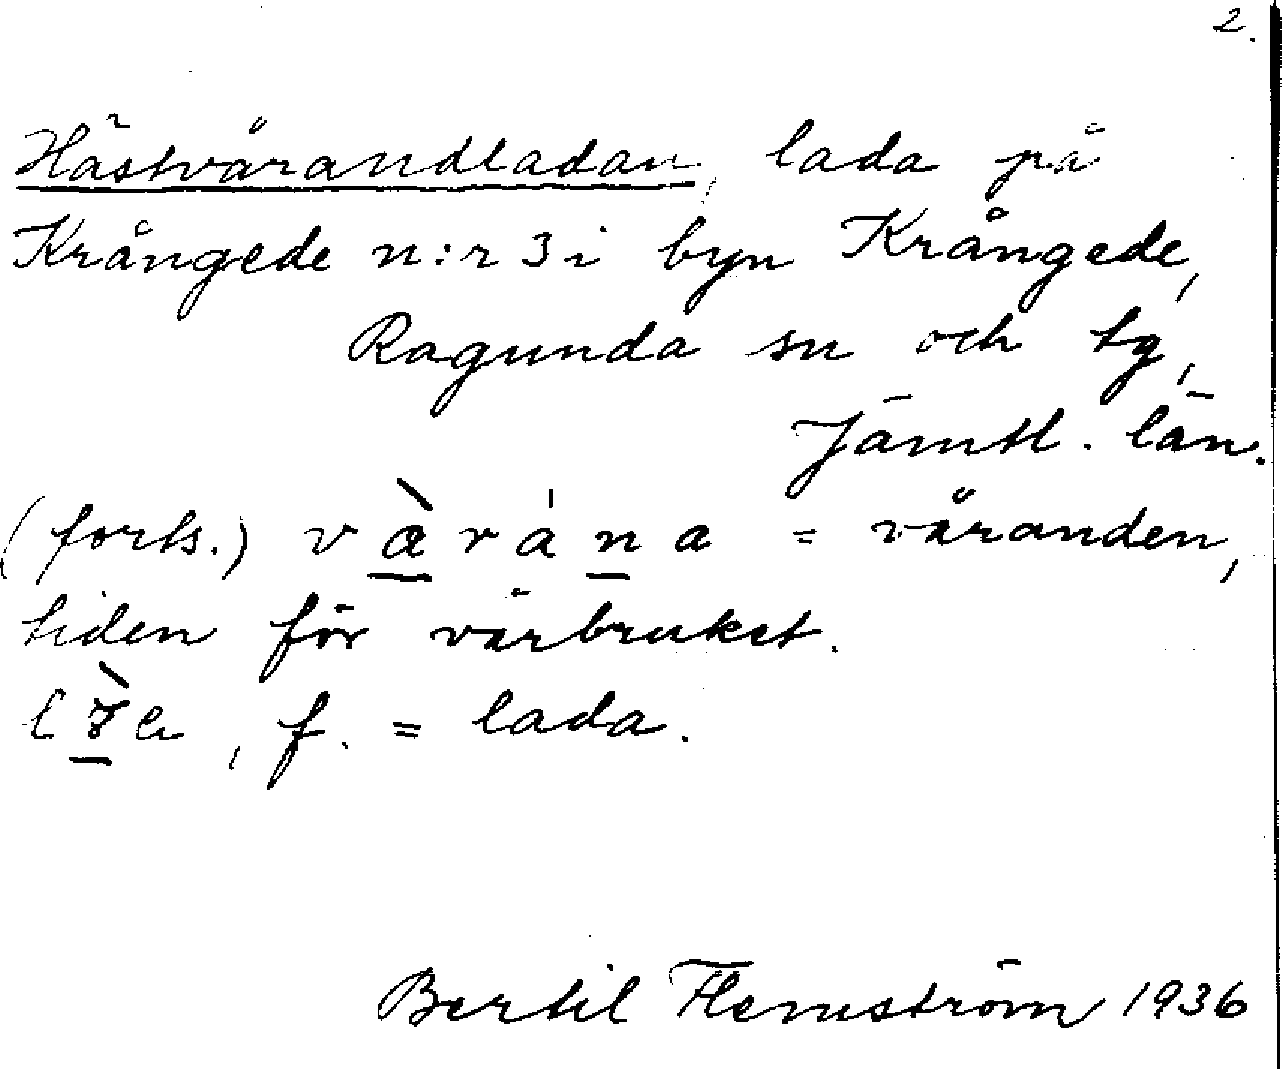 2.
Hästvårandladan, lada på
Krångede n:r 3 i byn Krångede,
Ragunda sn och tg,
Jämtl. län.
(forts.) v æ̀ r á n a = våranden,
tiden för vårbruket.
, f. = lada.
Bertil Flemström 1936